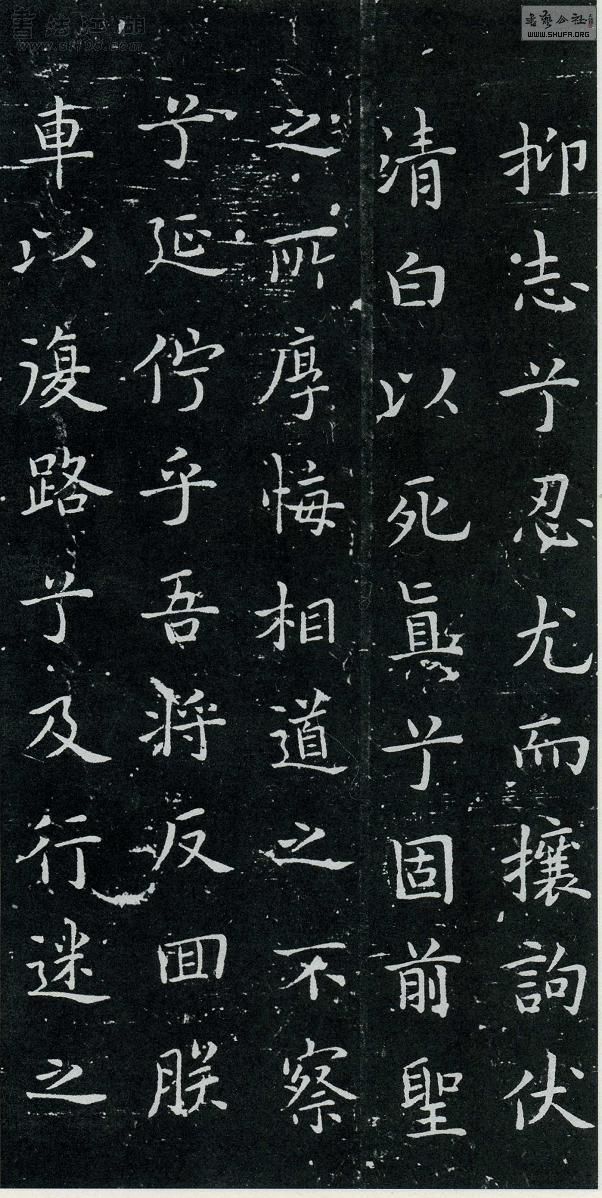 抑志兮忍尤而攘訽伏
清白以死眞兮固前聖
之所厚悔相道之不察
兮延佇乎吾將反回朕
車以復路兮及行迷之
書法江湖
www.sf108.com
书艺公社
www.SHUFA.ORG